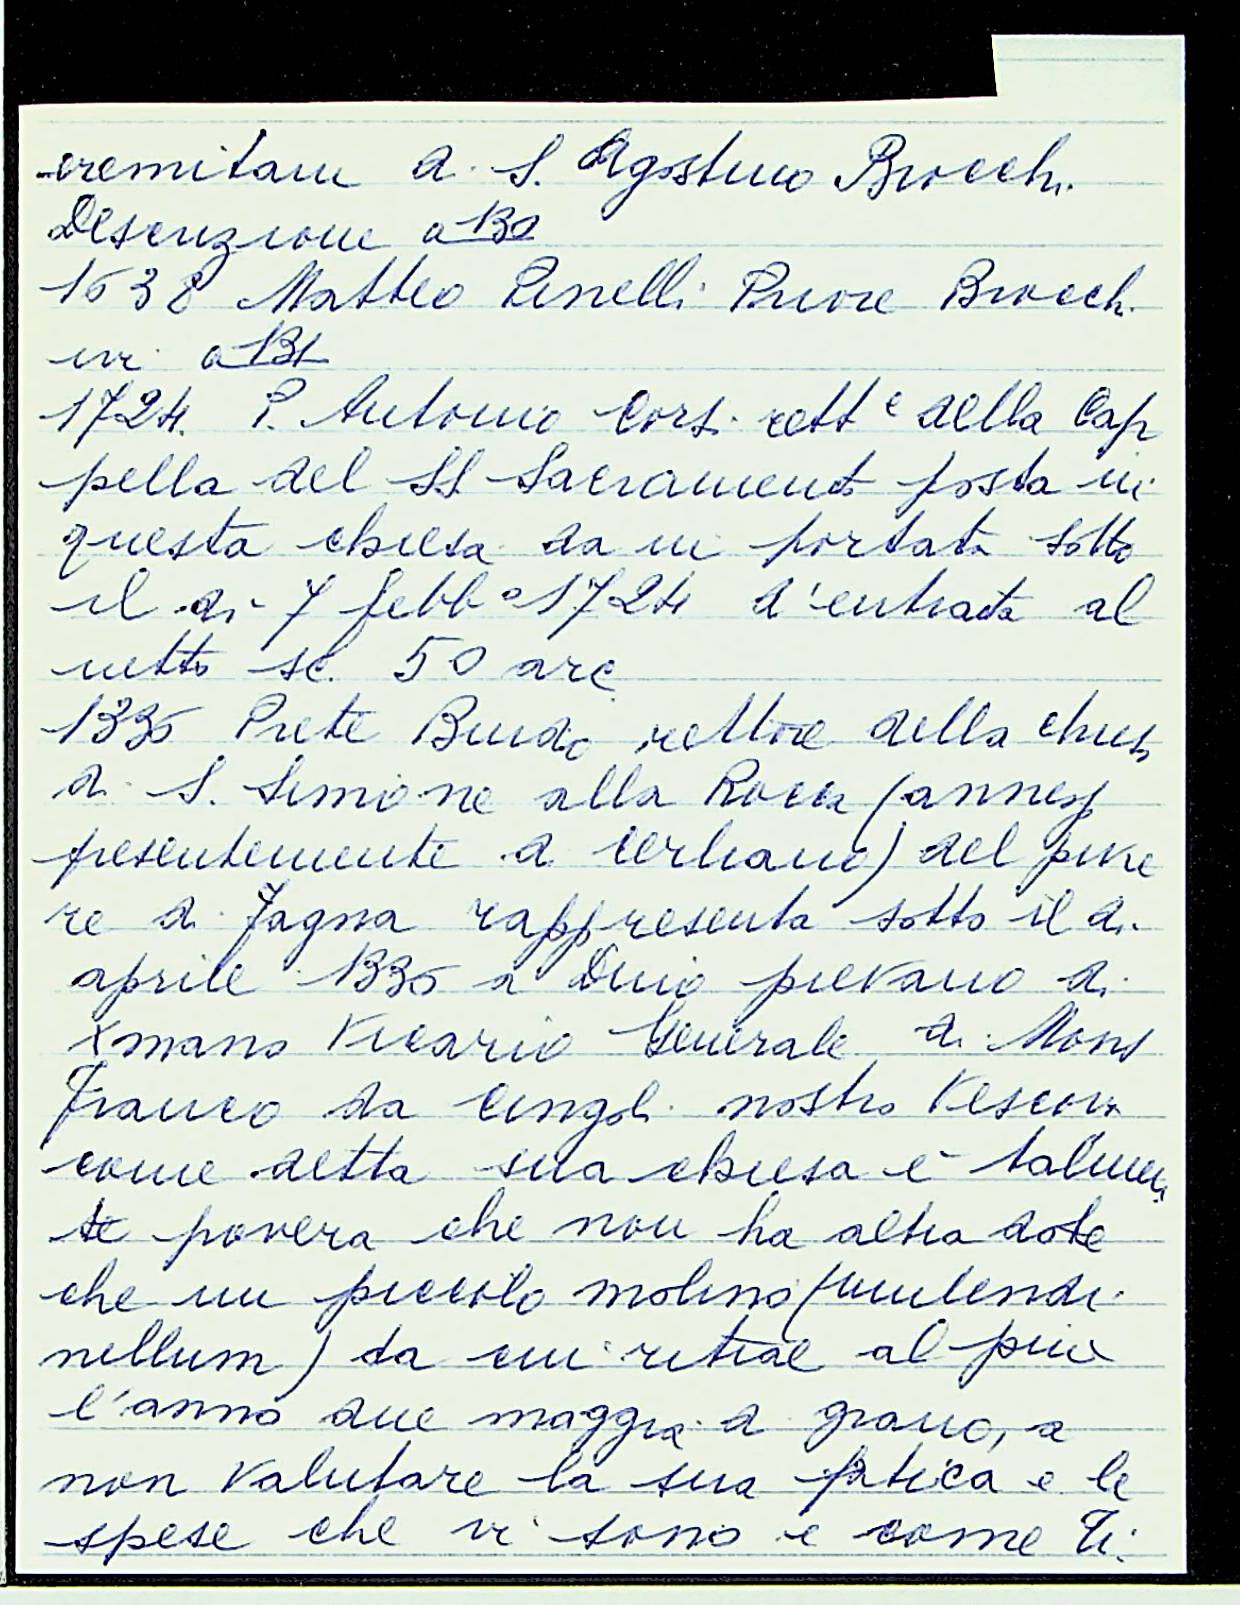 eremitani di S. Agostino Brocchi.
Descrizione a 130
1638 Matteo Pinelli Priore Brocch.
ivi a 131
1724. P. Antonio Corsi rett.e della Cap
pella del SS Sacramento posta in
questa chiesa da in portata sotto
il di 7 febb.o 1724 d'entrata al
netto sc. 50 arc
1335 Prete Bindo rettore della chiesa
di S. Simone alla Rocca (annes
presentemente a Cerliano) del pivie
re di Fagna rappresenta sotto il di
aprile 1335 a Dino pievano di
Xmano Vicario Generale di Mons
Franco da Cingoli nostro Vescovo
come detta sua chiesa è talmen
te povera che non ha altra dote
che un piccolo molino (mulendi
nellum) da cui ritrae al più
l'anno due moggia di grano, a
non valutare la sua fatica e le
spese che vi sono e come ti